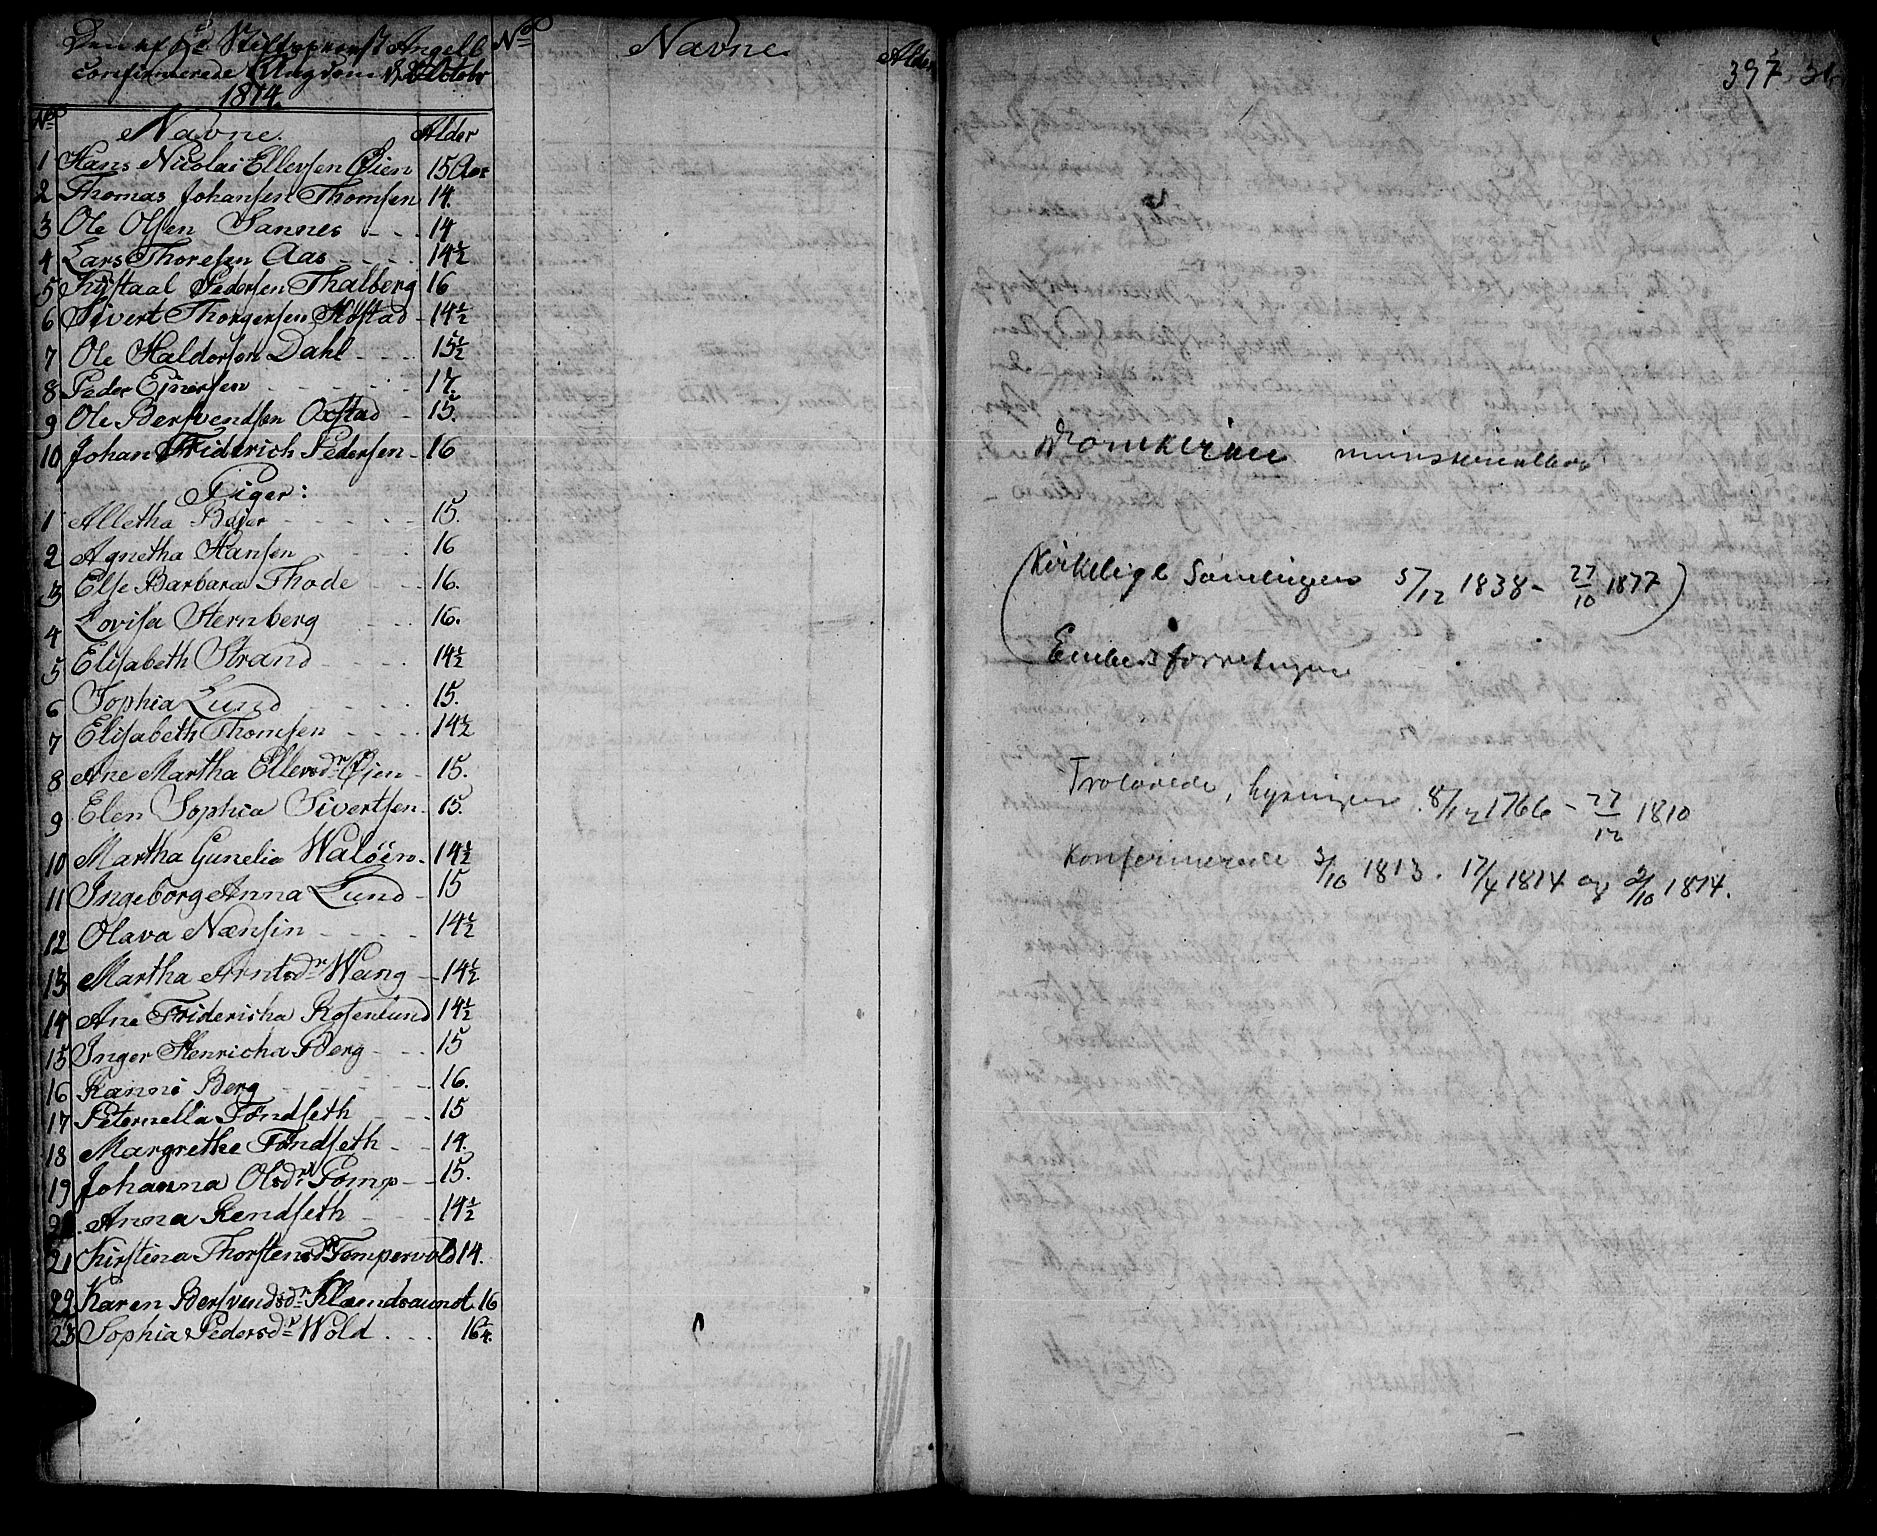 Den af Hr Stiftsprovst Angell
confirmerede Ungdom d. 2 Octobr
1814.
No Navne. Alder
1 Hans Nicolai Ellersen Øien 15 Aar
2 Thomas Johansen Thomsen 14.
3 Ole Olsen Sannes 14
4 Lars Thoresen Aas 14½
5 Kystaal Pedersen Thalberg 16
6 Sivert Thorgersen Mostad 14½
7 Ole Haldorsen Dahl 15½
8 Peder Einersen 17.
9 Ole Bersvendsen Oxstad 15.
10 Johan Friderich Pedersen 16
Piger:
1 Alletha Bojer 15.
2 Agnetha Hansen 16
3 Else Barbara Thode 16.
4 Lovisa Sternberg 16.
5 Elisabeth Strand 14½
6 Sophia Lund 15.
7 Elisabeth Thomsen 14½
8 Ane Martha Ellersdr Øien 15.
9 Elen Sophia Sivertsen 15.
10 Martha Gunelia Waløen 14½
11 Ingeborg Anna Lund 15
12 Olava Nænsin 14½
13 Martha Arntsdr Wang 14½
14 Ane Fridericha Rosenlund 14½
15 Inger Henricha Berg 15
16 Hanna Berg 16.
17 Peternella Tøndseth 15
18 Margrethe Tøndseth 14.
19 Johanna Olsdr Tomp 15.
20. Anna Rendseth 14½
21 Kirstina Thorstensdr Tompervold 14.
22 Karen Bersvendsdr Klændsaunet 16
23 Sophia Pedersdr Wold 16¼.
No Navne. Alder
397
Domkirken ministerialbog
(Kirkelige Samlinger 5/12 1838 - 27/10 1877)
Embedsforretninger
Trolovede, lysninger 8/12 1766 - 27/12 1810
Konfirmerede 3/10 1813. 17/4 1814 og 2/10 1814.